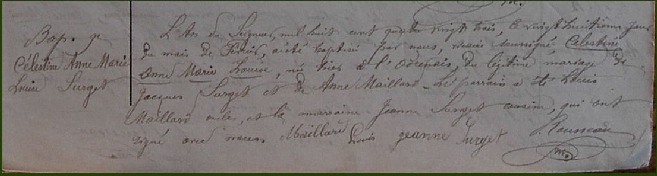 Bap. 
Célestine Anne Marie
Louise Surget
L'An du Seigneur, mil huit cent quatre vingt trois, le vingt huitième jour
du mois de a été baptisée par nous, vicaire soussigné, Célestine
Anne Marie Louise, née hier à du légitime mariage
Jacques Surget et de Anne Maillard. Le parrain a été Louis
Maillard oncle, et la marraine Jeanne Surget cousine, qui ont
signé avec nous. Maillard Louis jeanne Surget